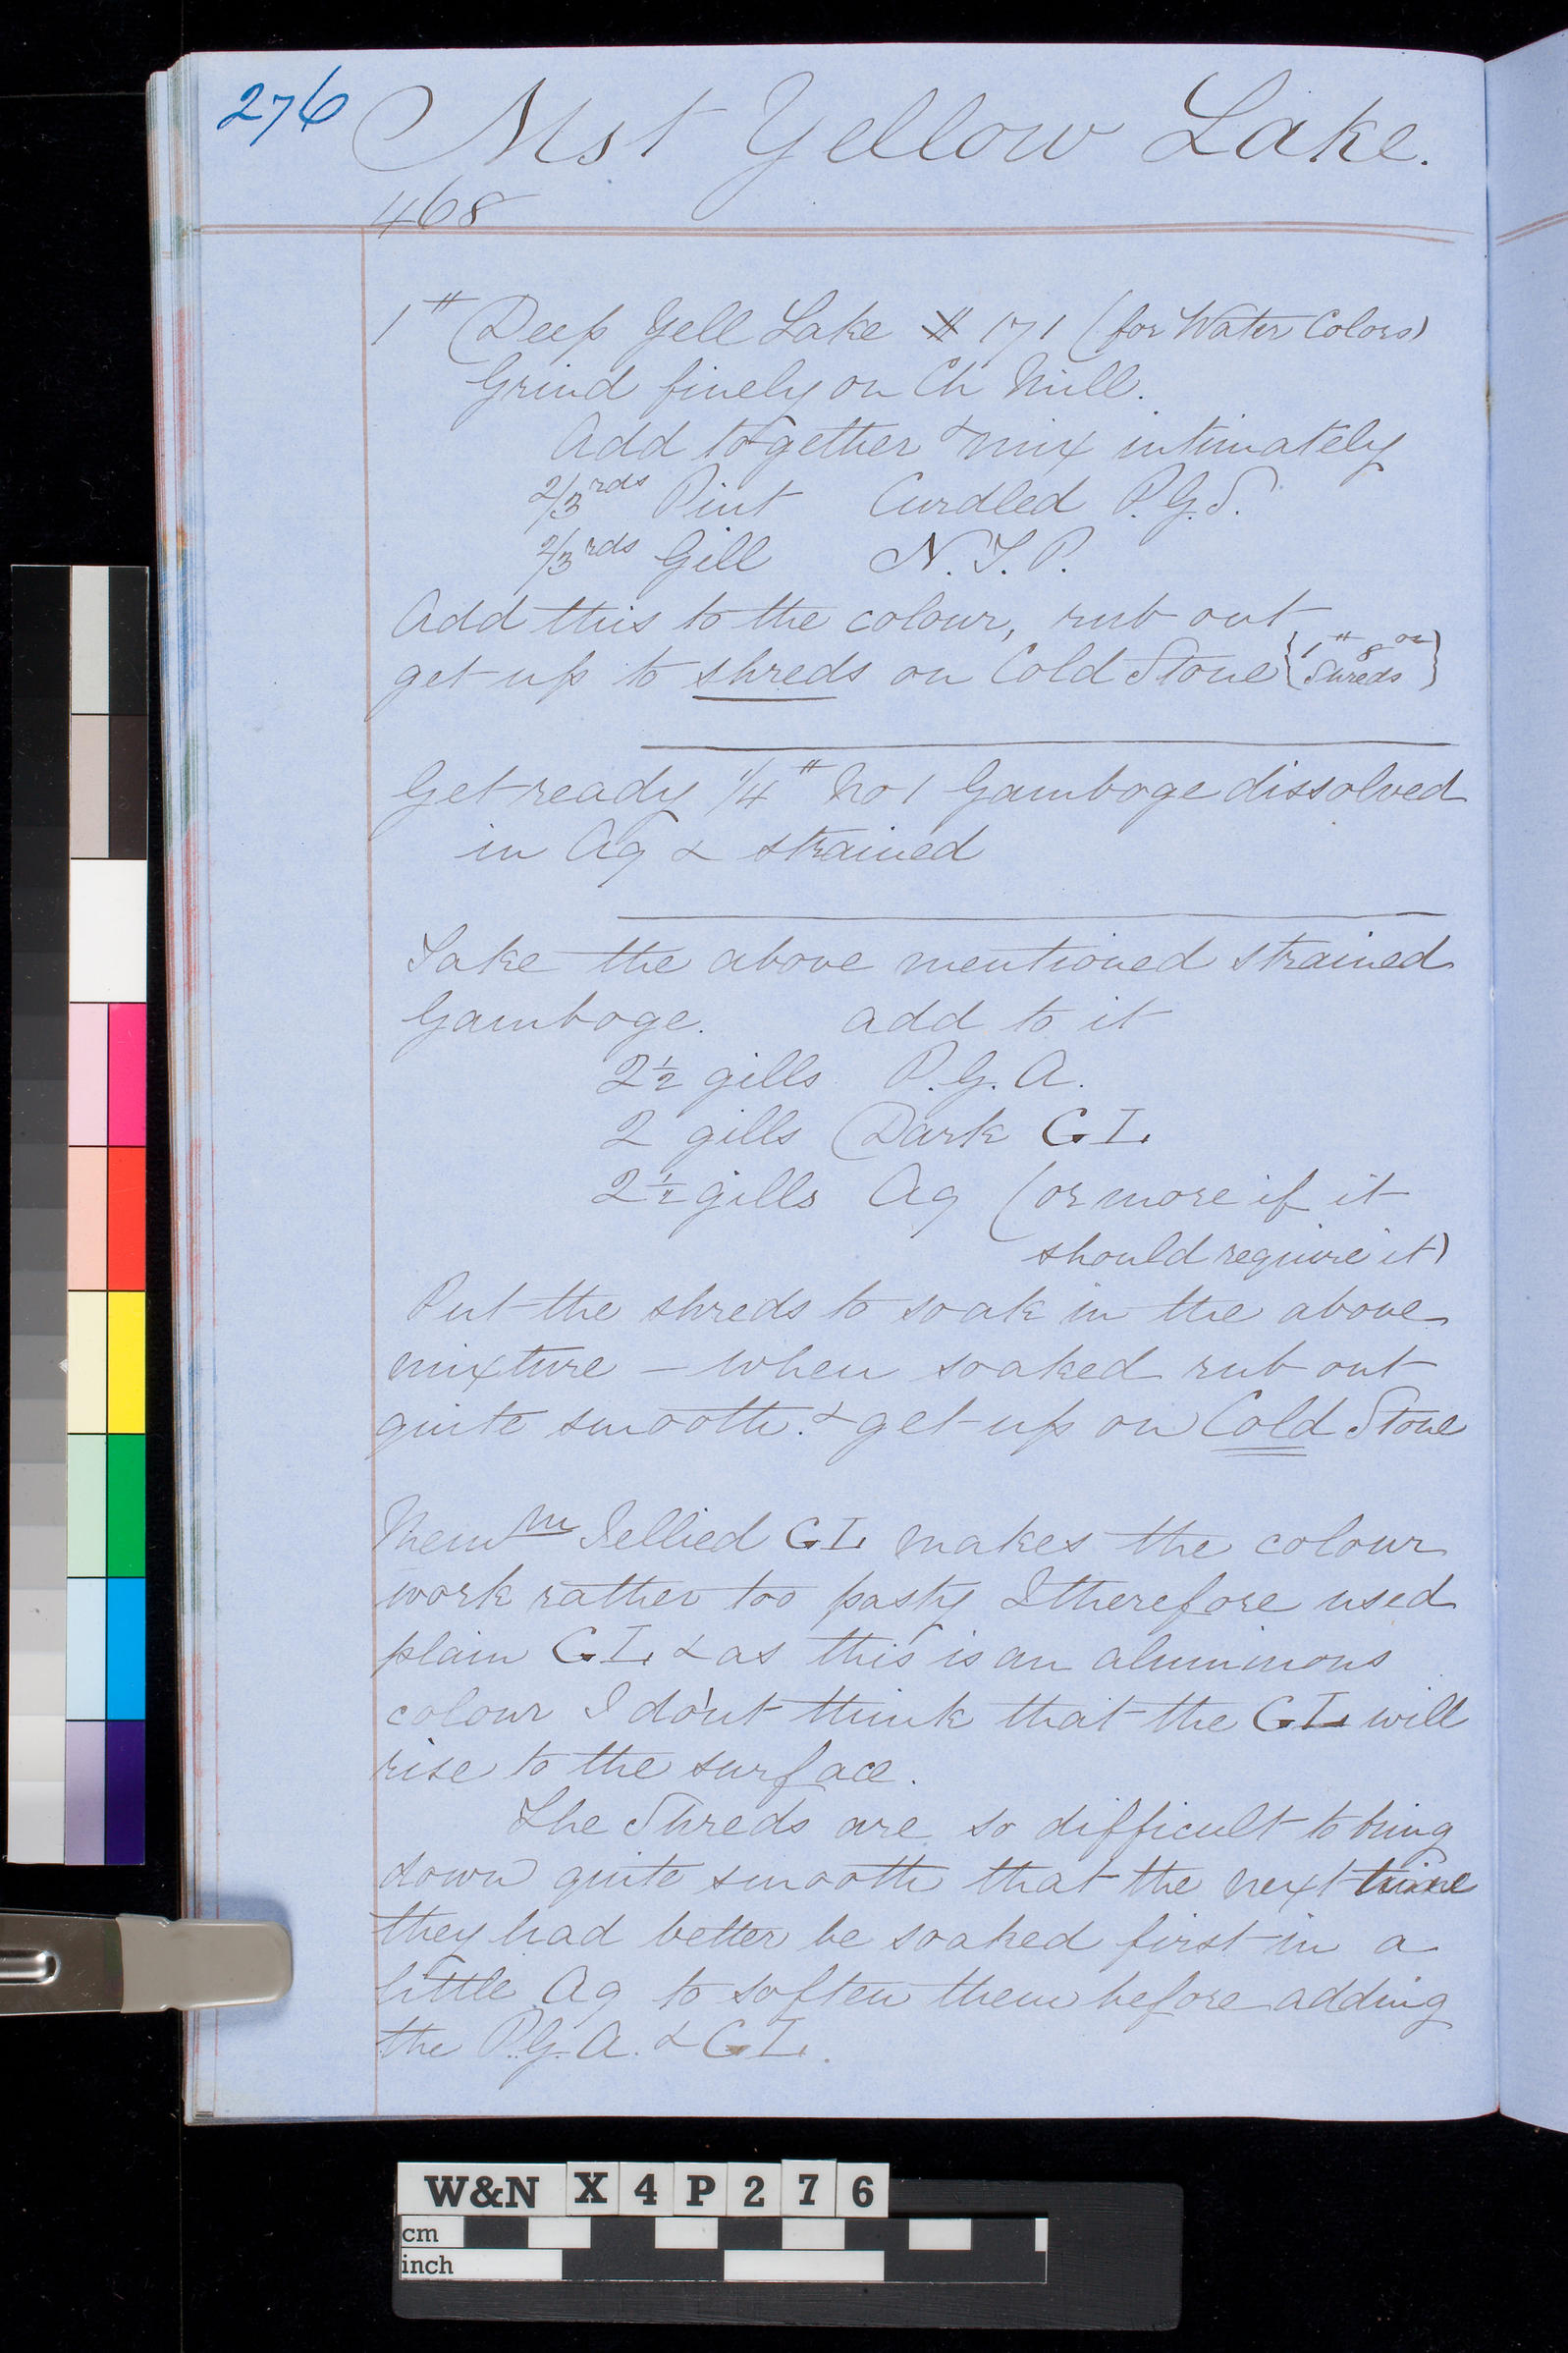 276 Mst Yellow Lake.
468
1# Deep Yell Lake # 171 (for Water Colors)
Grind finely on Ch Mill.
Add together & mix intimately
2/3rds Pint Curdled P.G.S.
2/3rds Gill N.T.P.
Add this to the colour, rub out
get up to shreds on Cold Stone {1# 8 oz
Shreds}
Get ready 1/4# No 1 Gamboge dissolved
in Aq & strained
Take the above mentioned strained
Gamboge. add to it
2½ gills P.G.A.
2 gills Dark GL
2½ gills Aq (or more if it
should require it)
Put the shreds to soak in the above
mixture – when soaked rub out
quite smooth. & get up on Cold Stone
Memm Jellied GL makes the colour
work rather too pasty I therefore used
plain GL & as this is an aluminous
colour I do'nt think that the GL will
rise to the surface.
The Shreds are so difficult to bring
down quite smooth that the next time
they had better be soaked first in a
little Aq to soften them before adding
the P.G.A. & GL.
W&N X4P276
cm
inch